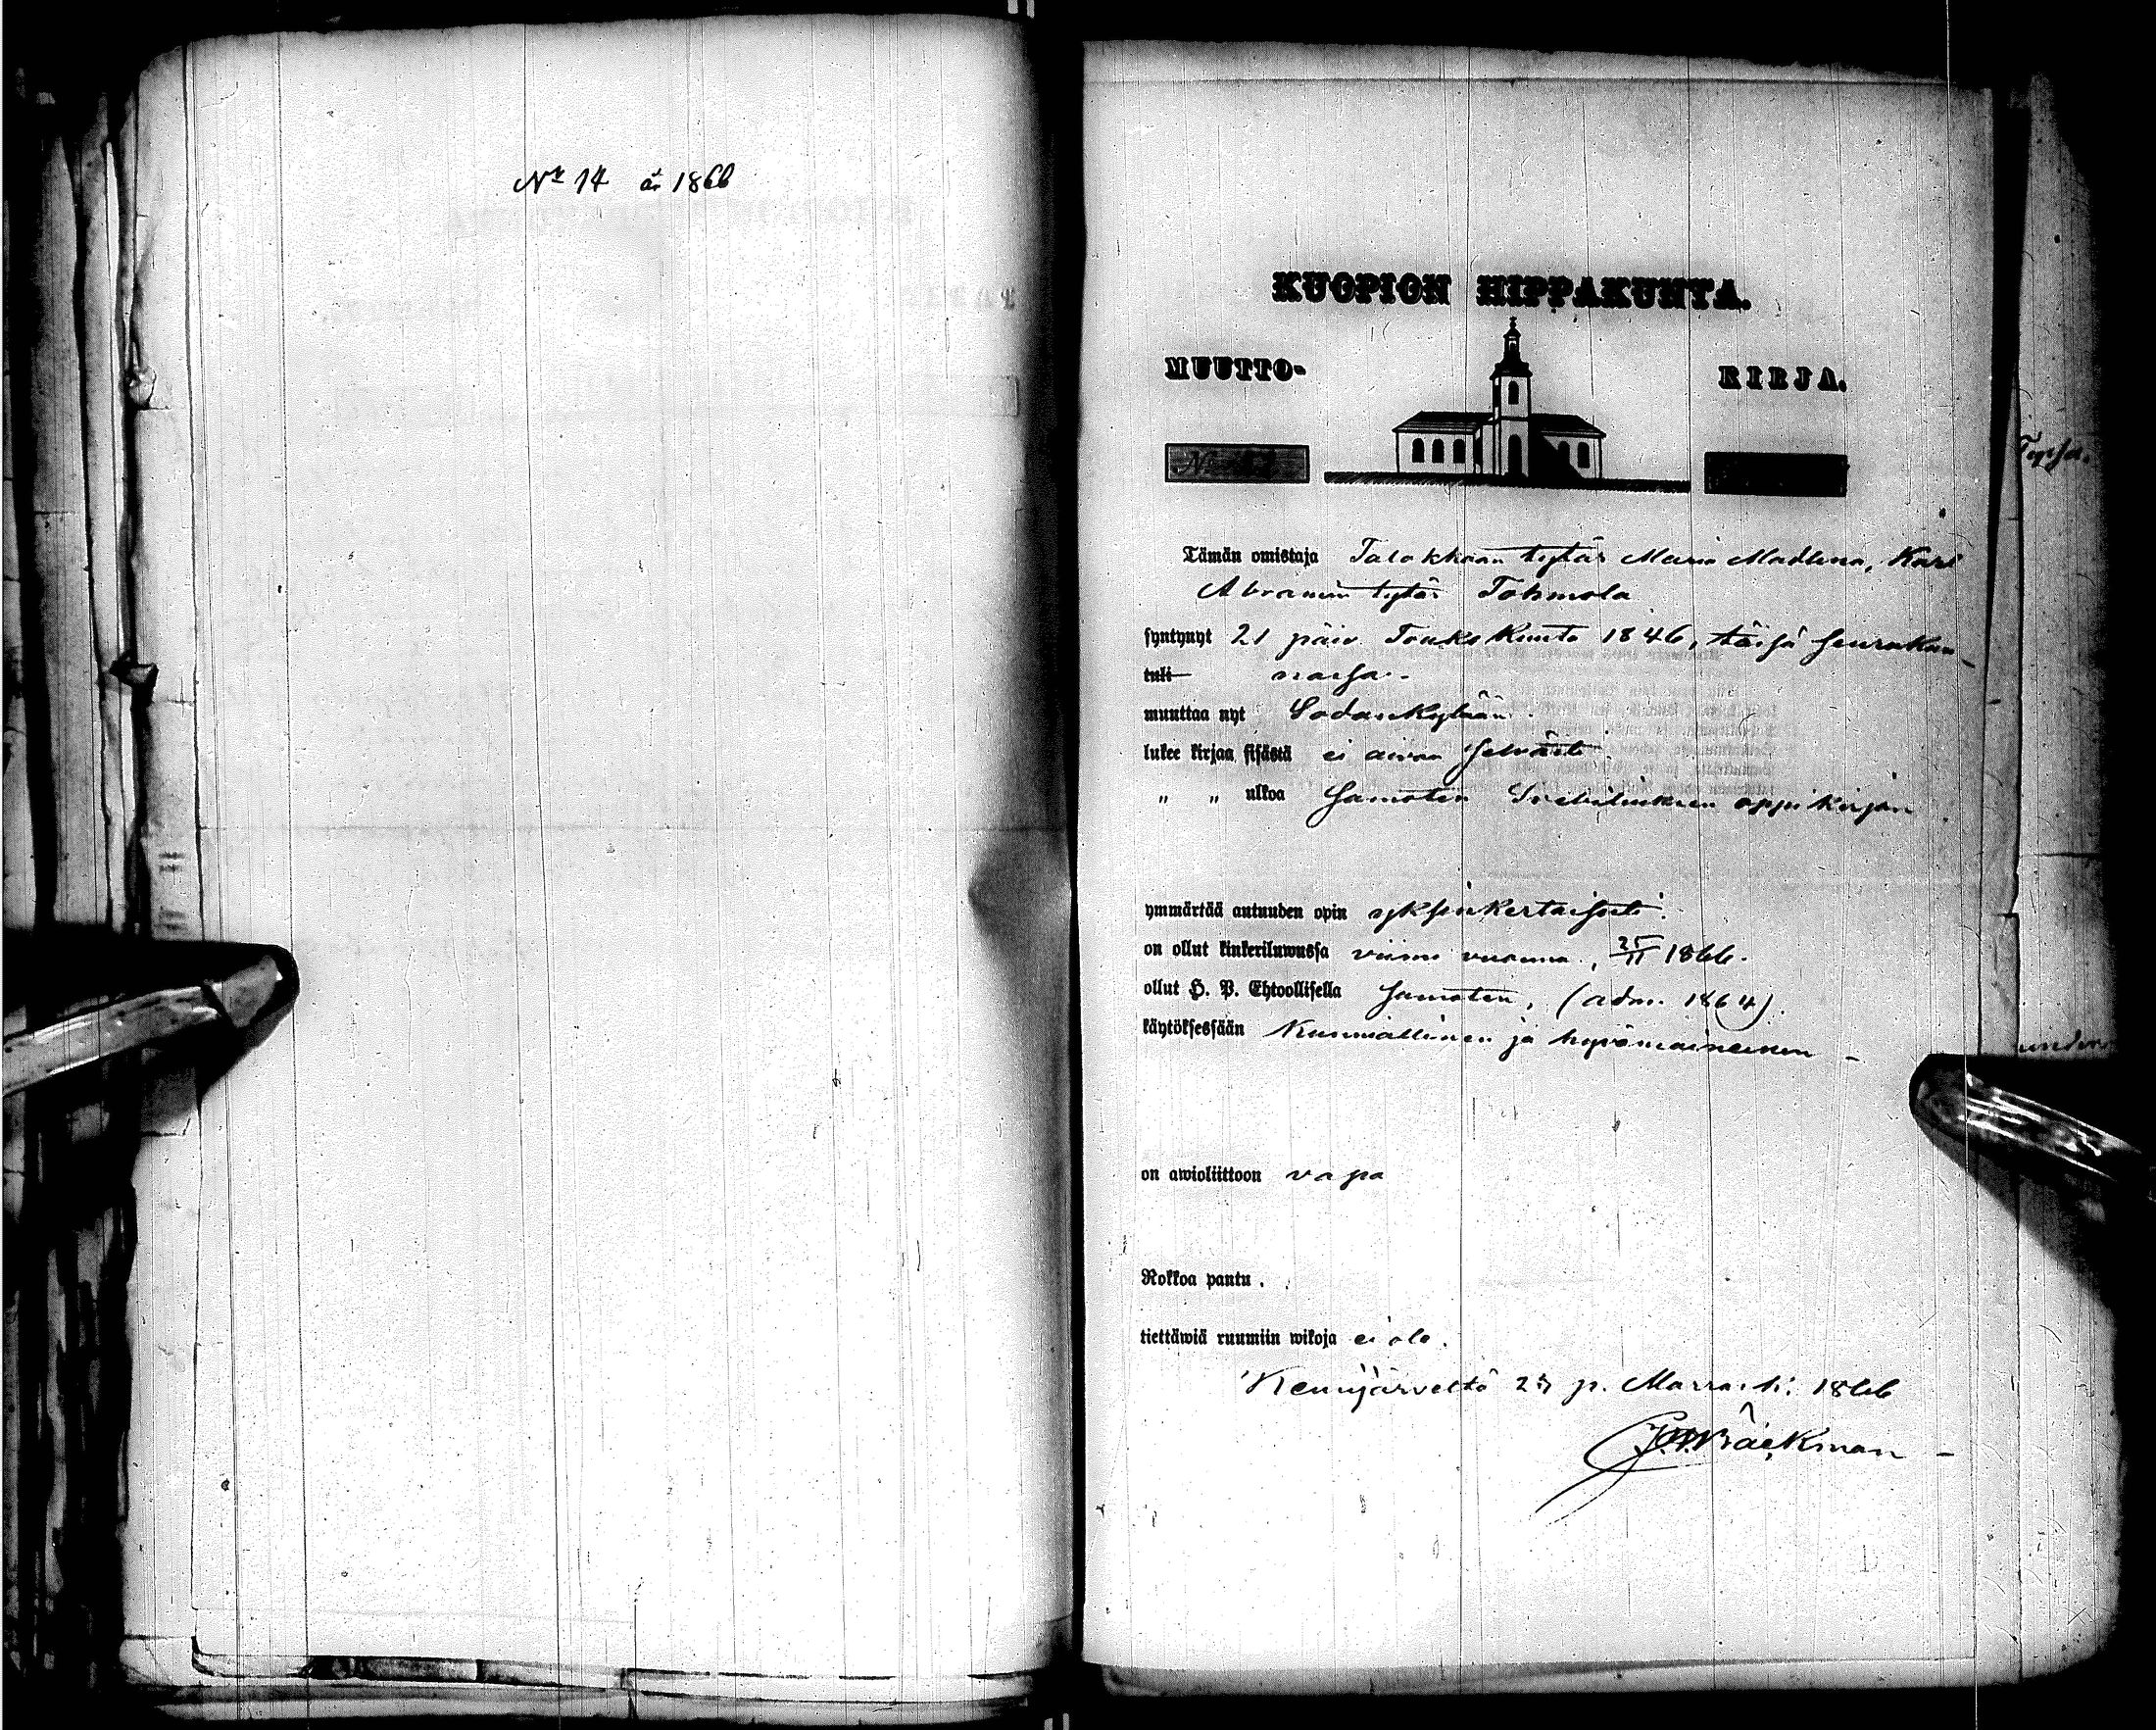 Nr 14 år 1866
KUOPION HIPPAKUNTA.
MUUTTO- KIRJA.
No
Tämän omistaja Talokkaan tytär Maria Madlena, Karl
Abramin tytär Tohmola
syntynyt 21 päiv. Touko kuuta 1846, täsä seurakun-
tuli nasa.
muuttaa nyt Sodankylään.
lukee kirjaa sisästä ei aivan selvästi
„ „ ulkoa samaten Svebiliuksen oppi kirjan
ymmärtää autuuden opin yksinkertaisesti.
on ollut kinkeriluwussa viime vuonna, 25/11 1866.
ollut H. P. Ehtoollisella samaten, (adm. 1864).
käytöksessään kunniallinen ja hyvämaineinen -
on awioliittoon vapa
Rokkoa pantu.
tiettäwiä ruumiin wikoja ei ole.
Kemijärveltä 27 p. Marrask. 1866
Bäckman -